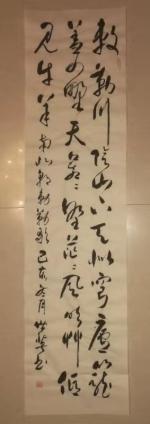 敕勒川陰山下天似穹廬籠
蓋四野天蒼〻野茫〻風吹草低
見牛羊 南北朝敕勒歌 己亥冬月 書